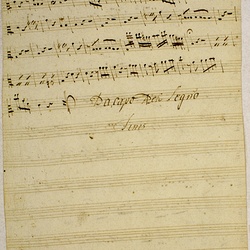 Da capo Del Segno
Finis